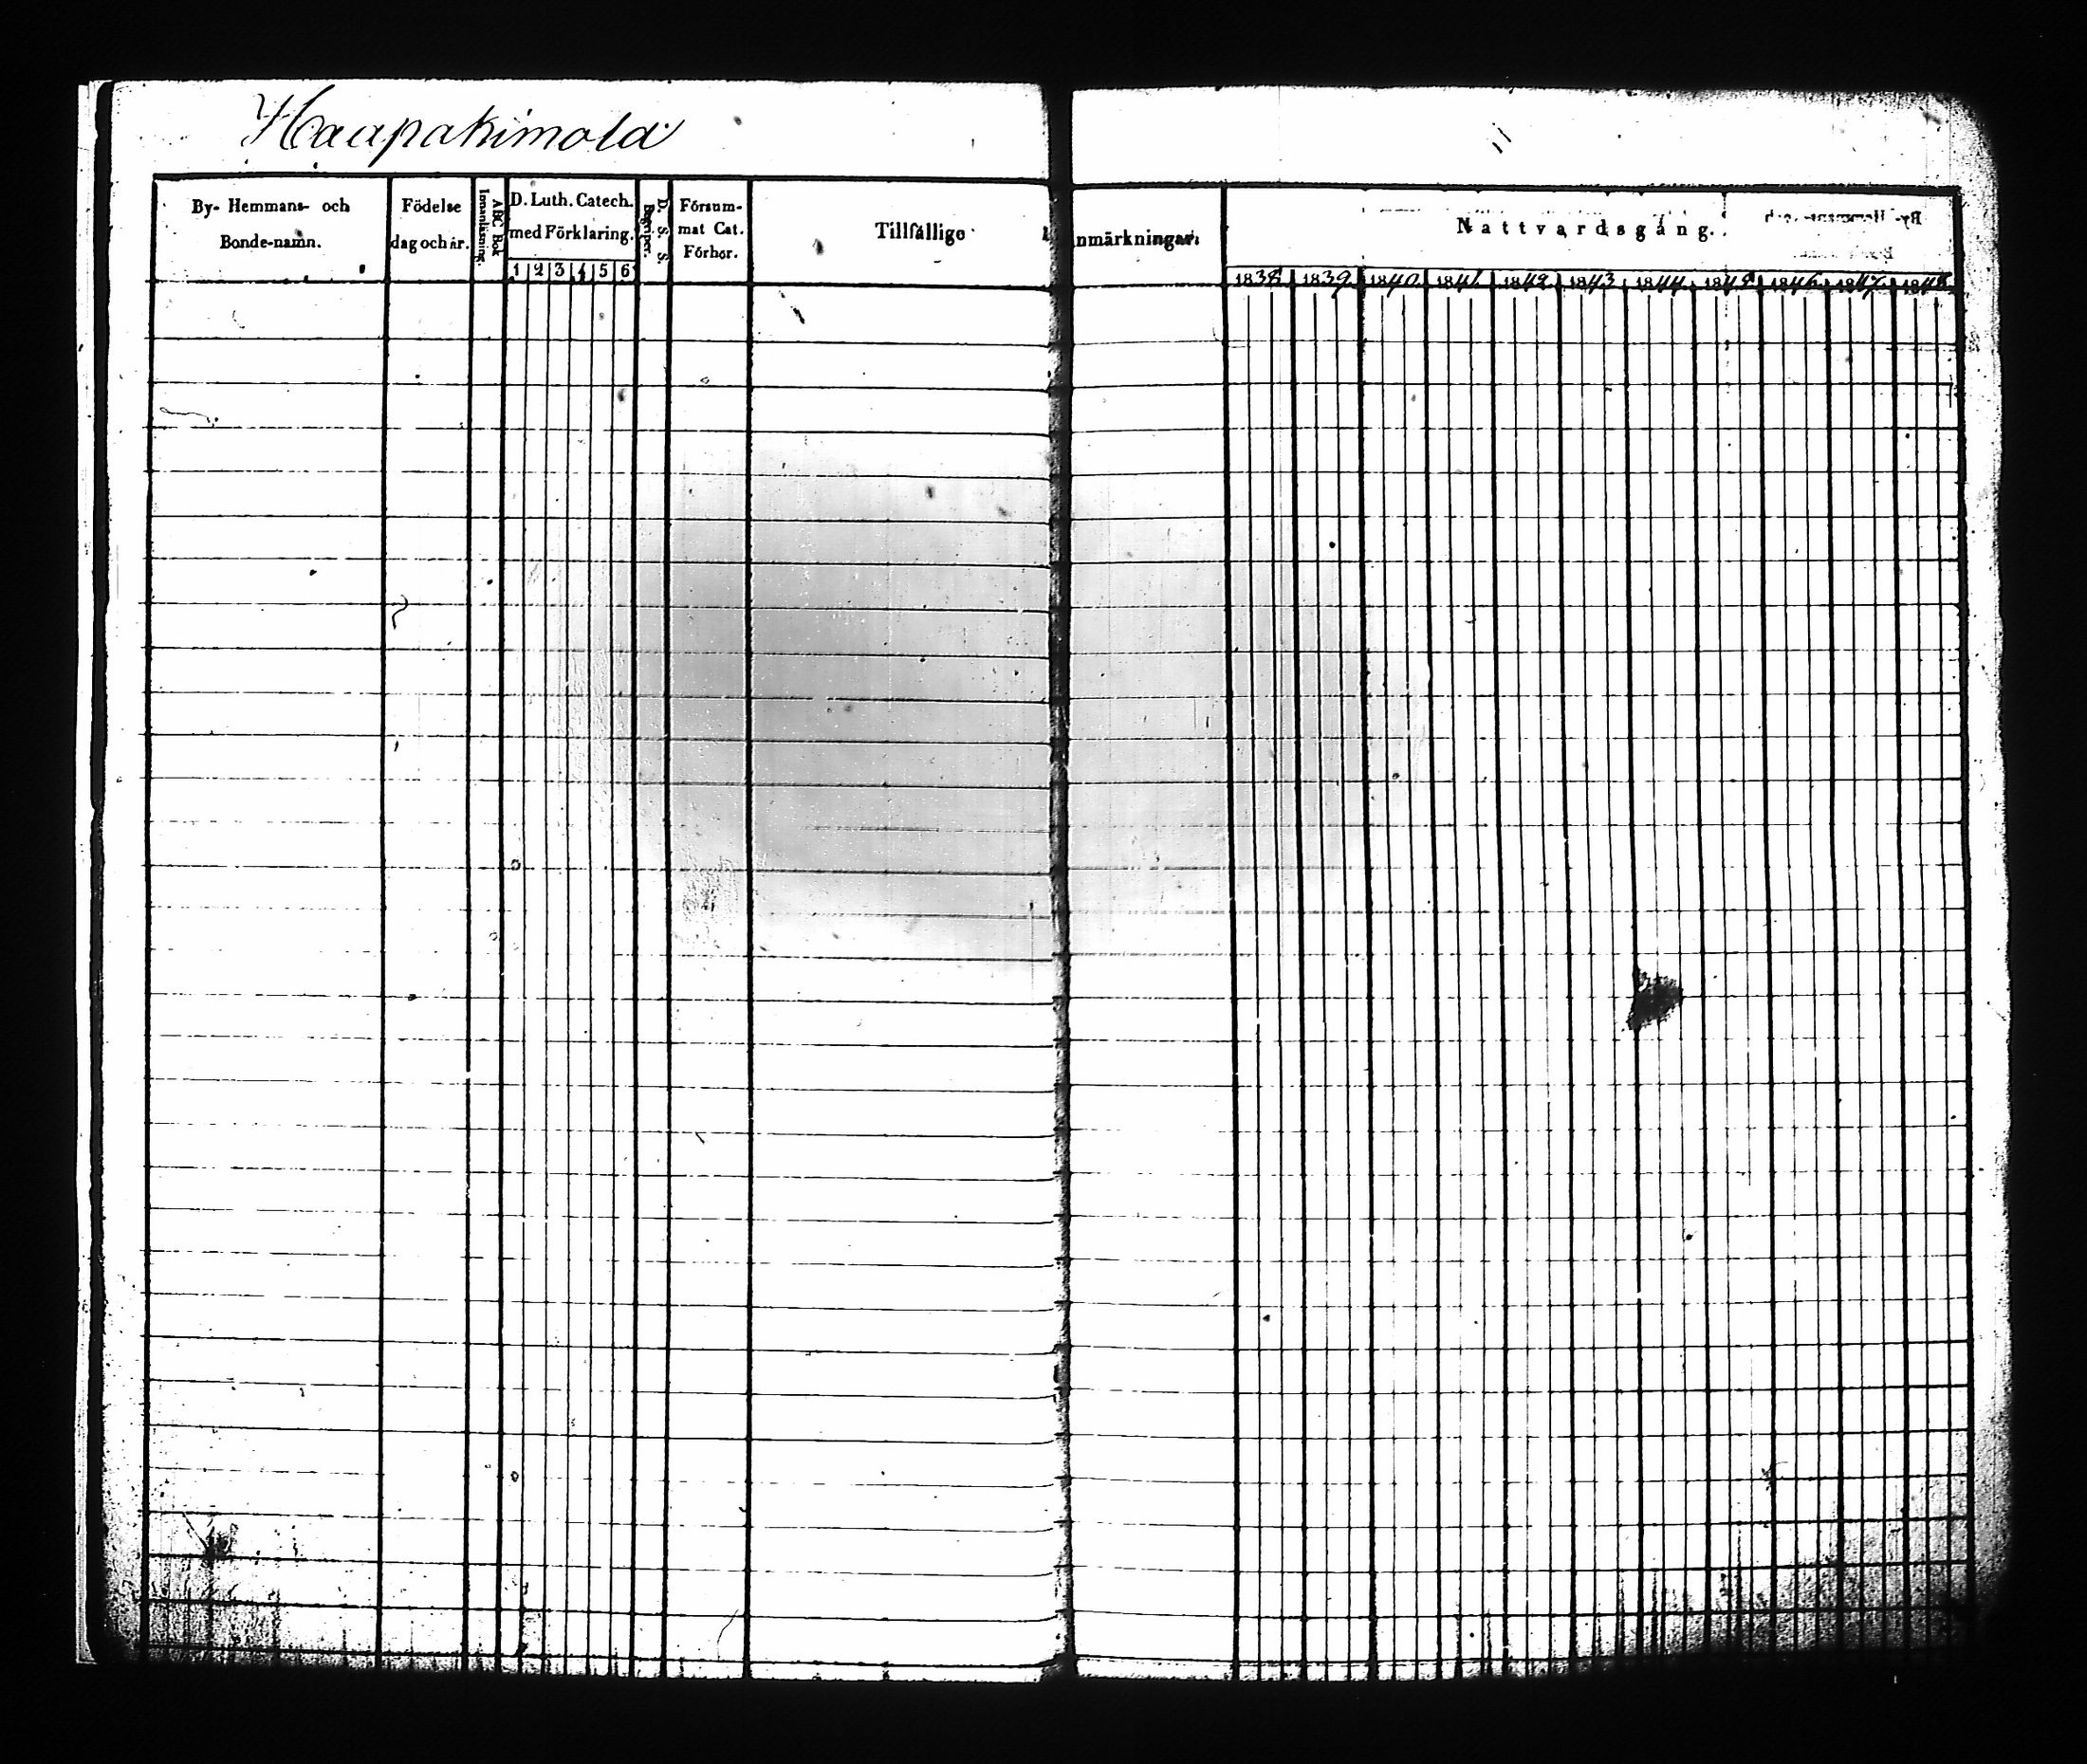 Haapakimola
11
By- Hemmans- och
Bonde-namn.
Födelse
dag och år.
ABC Bok
Innanläsning.
D. Luth. Catech.
med Förklaring.
1 2 3 4 5 6
D. S. S.
Begriper.
Försum-
mat Cat.
Förhör.
Tillfällige Anmärkningar.
Nattvardsgång.
1838 1839 1840 1841 1842 1843 1844 1845 1846 1847 1848